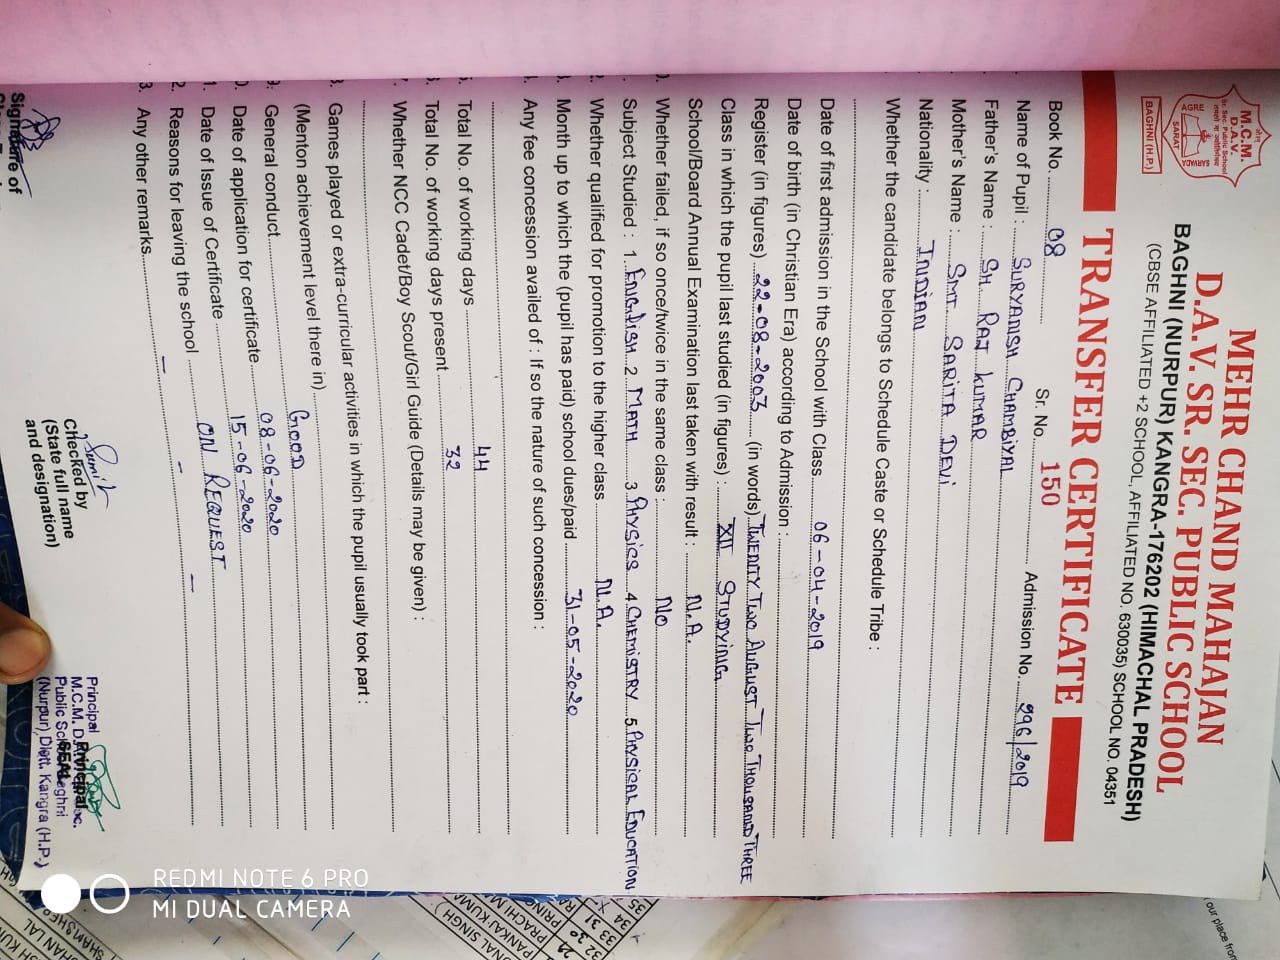 MEHR CHAND MAHAJAN
D.A.V. SR. SEC. PUBLIC SCHOOL
BAGHNI (NURPUR) KANGRA-176202 (HIMACHAL PRADESH)
(CBSE AFFILIATED +2 SCHOOL, AFFILIATED NO. 630035) SCHOOL NO. 04351
M.C.M.
D.A.V.
Sr. Sec. Public School
AGRE
SARAT
SARVADA
BAGHNI (H.P.)
TRANSFER CERTIFICATE
Book No. 08 Sr. No. 150 Admission No. 996/2019
Name of Pupil : SURYANSH CHAMBIYAL
Father's Name : SH. RAJ KUMAR
Mother's Name : SMT. SARITA DEVI
Nationality : INDIAN
Whether the candidate belongs to Schedule Caste or Schedule Tribe :
Date of first admission in the School with Class 06-04-2019
Date of birth (in Christian Era) according to Admission :
Register (in figures) 22-08-2003 (in words) TWENTY TWO AUGUST TWO THOUSAND THREE
Class in which the pupil last studied (in figures) : XII STUDYING
School/Board Annual Examination last taken with result : N.A.
Whether failed, if so once/twice in the same class : No
Subject Studied : 1. ENGLISH 2. MATH 3. PHYSICS 4. CHEMISTRY 5. PHYSICAL EDUCATION
Whether qualified for promotion to the higher class N.A.
Month up to which the (pupil has paid) school dues/paid 31-05-2020
Any fee concession availed of : If so the nature of such concession :
Total No. of working days 44
Total No. of working days present 32
Whether NCC Cadet/Boy Scout/Girl Guide (Details may be given) :
Games played or extra-curricular activities in which the pupil usually took part :
(Menton achievement level there in)
General conduct GOOD
Date of application for certificate 08-06-2020
Date of Issue of Certificate 15-06-2020
2. Reasons for leaving the school ON REQUEST
3. Any other remarks
Signature of
Sumit
Checked by
(State full name
and designation)
Principal
SEAL
Principal
M.C.M. D.A.V. Sr. Sec.
Public School Baghni
(Nurpur), Distt. Kangra (H.P.)
REDMI NOTE 6 PRO
MI DUAL CAMERA
our place from